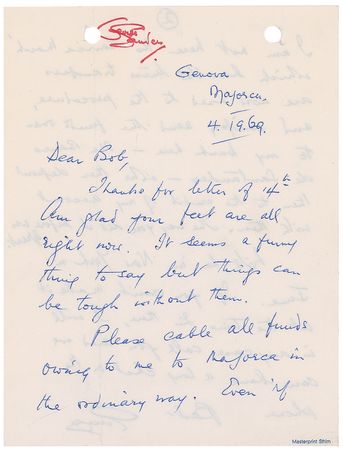 George Sanders
Genova
Majorca.
4.19.69.
Dear Bob,
Thanks for letter of 14th
Am glad your feet are all
right now. It seems a funny
thing to say but things can
be tough without them.
Please cable all funds
owing to me to Majorca in
the ordinary way. Even if
Masterprint Shim